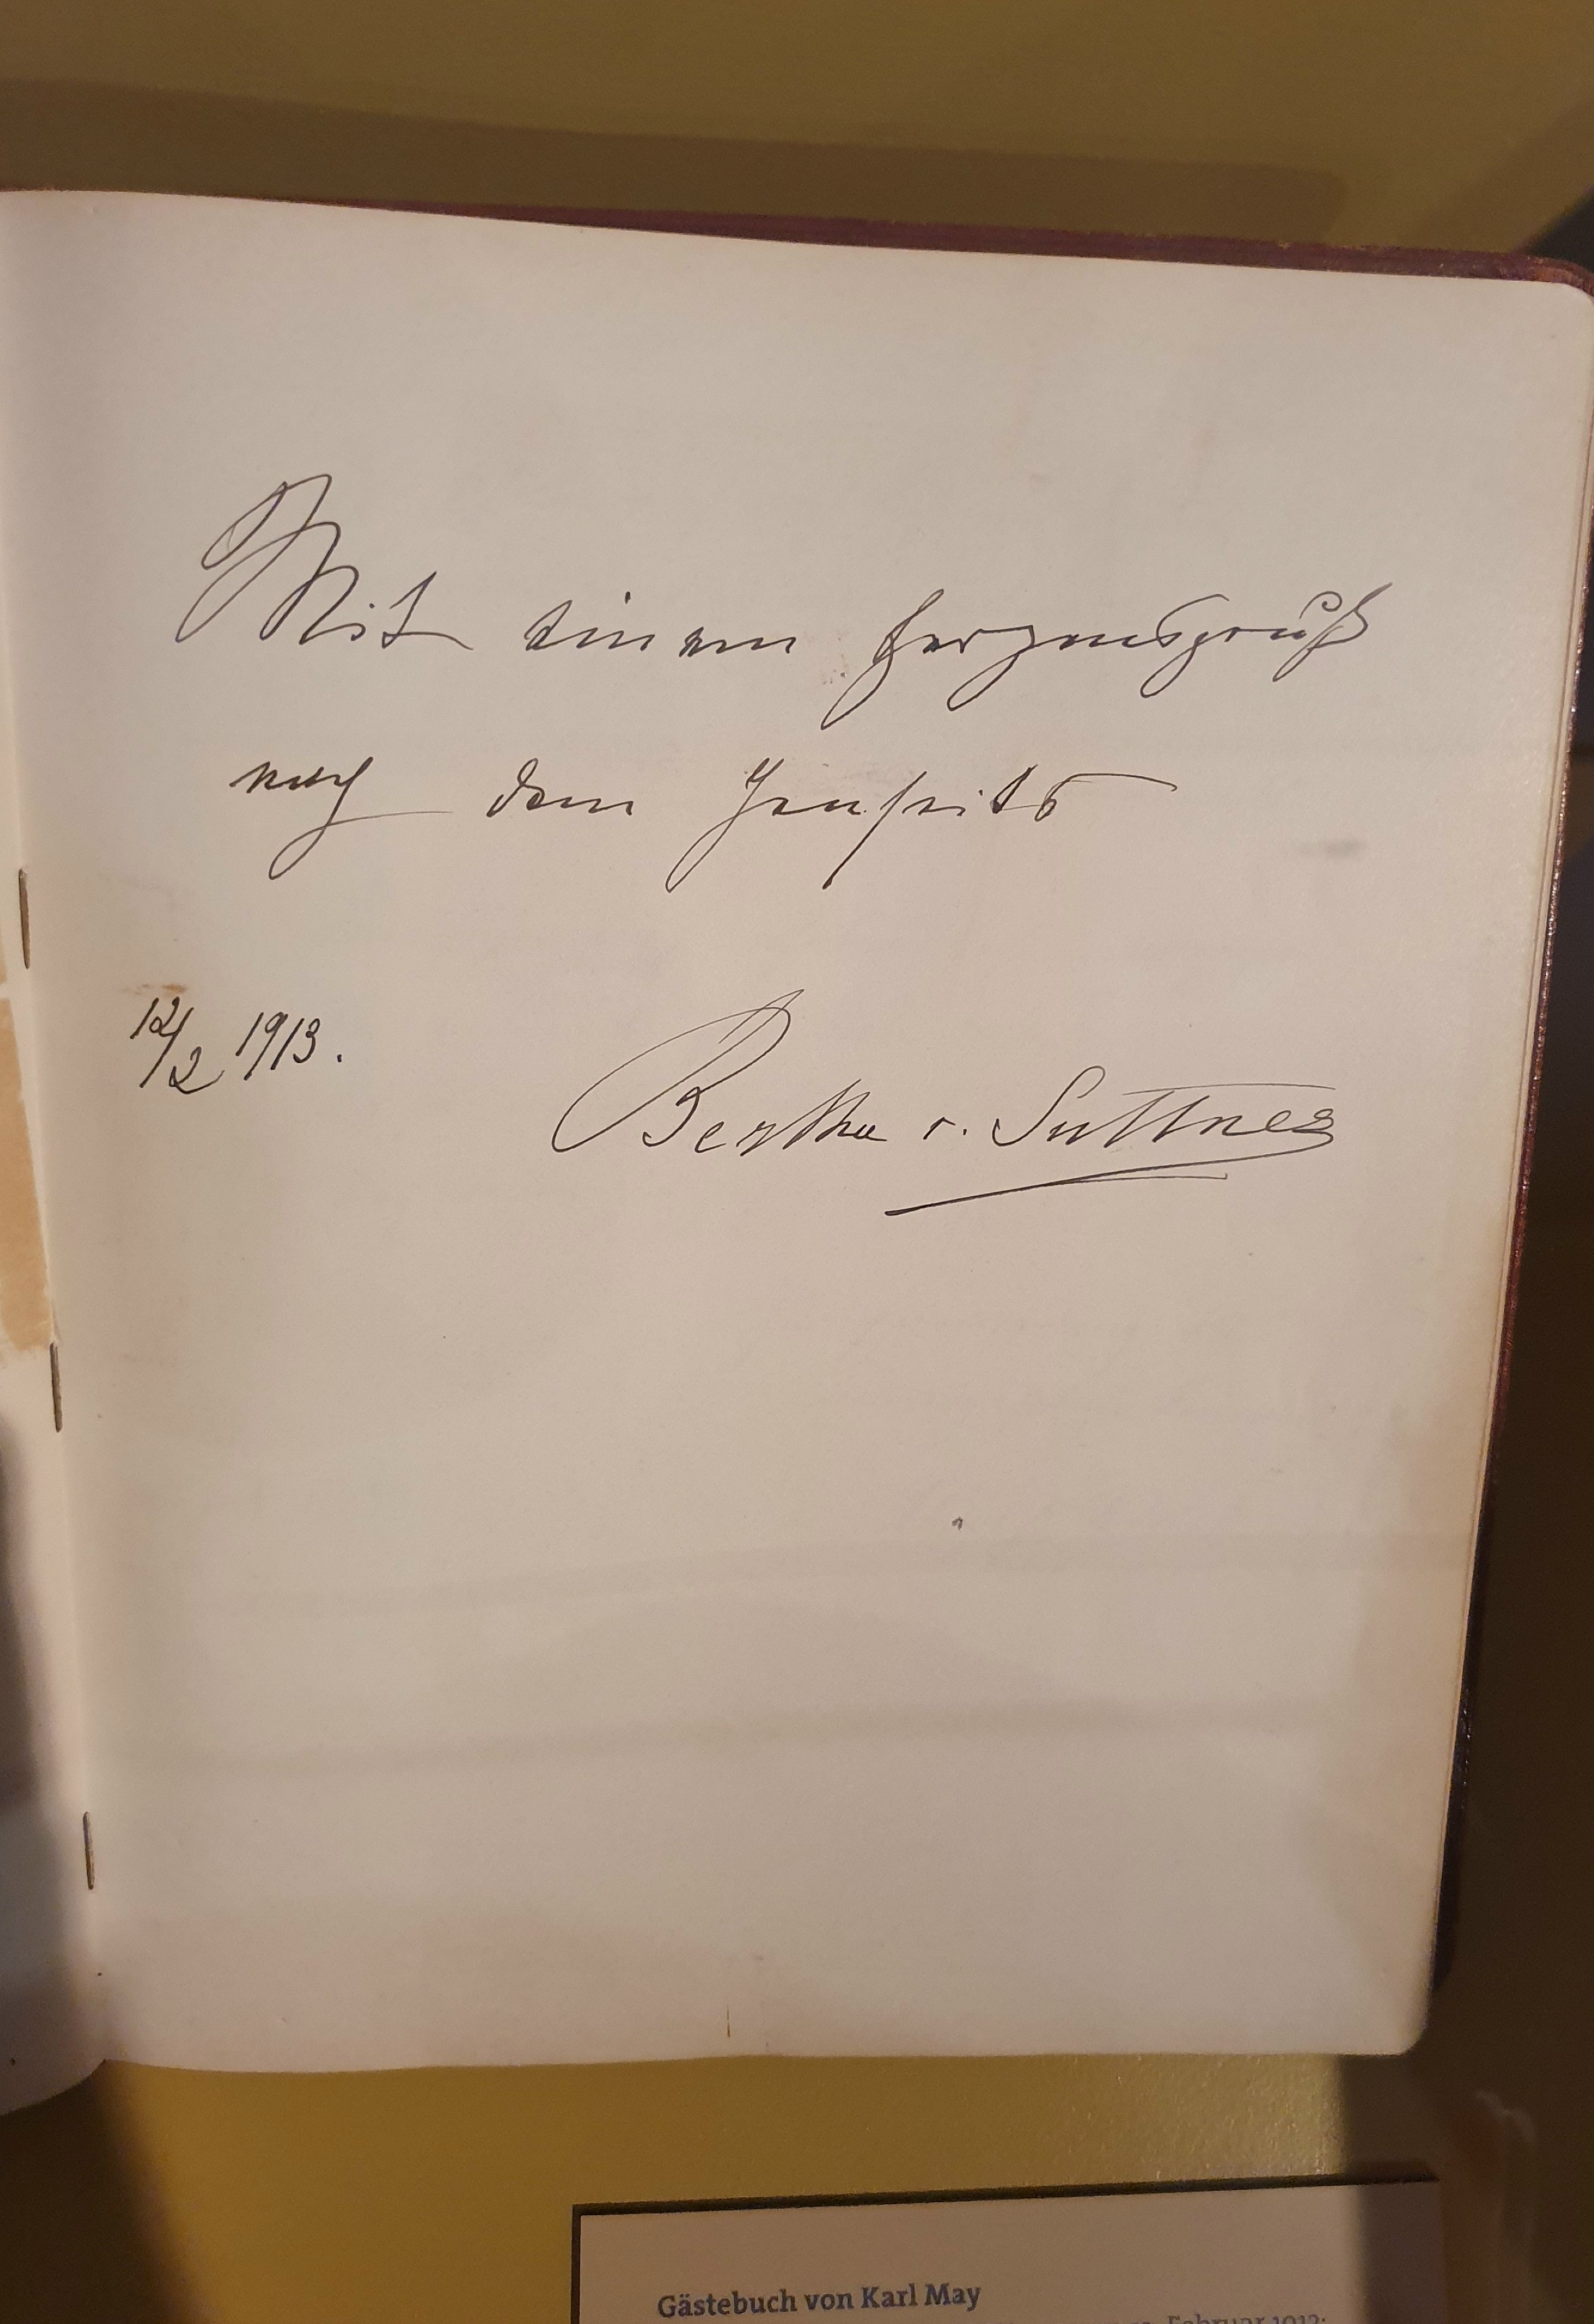 Mit einem Herzensgruß
nach dem Jenseits
12/2 1913.
Bertha v. Suttner
Gästebuch von Karl May
Februar 1913: